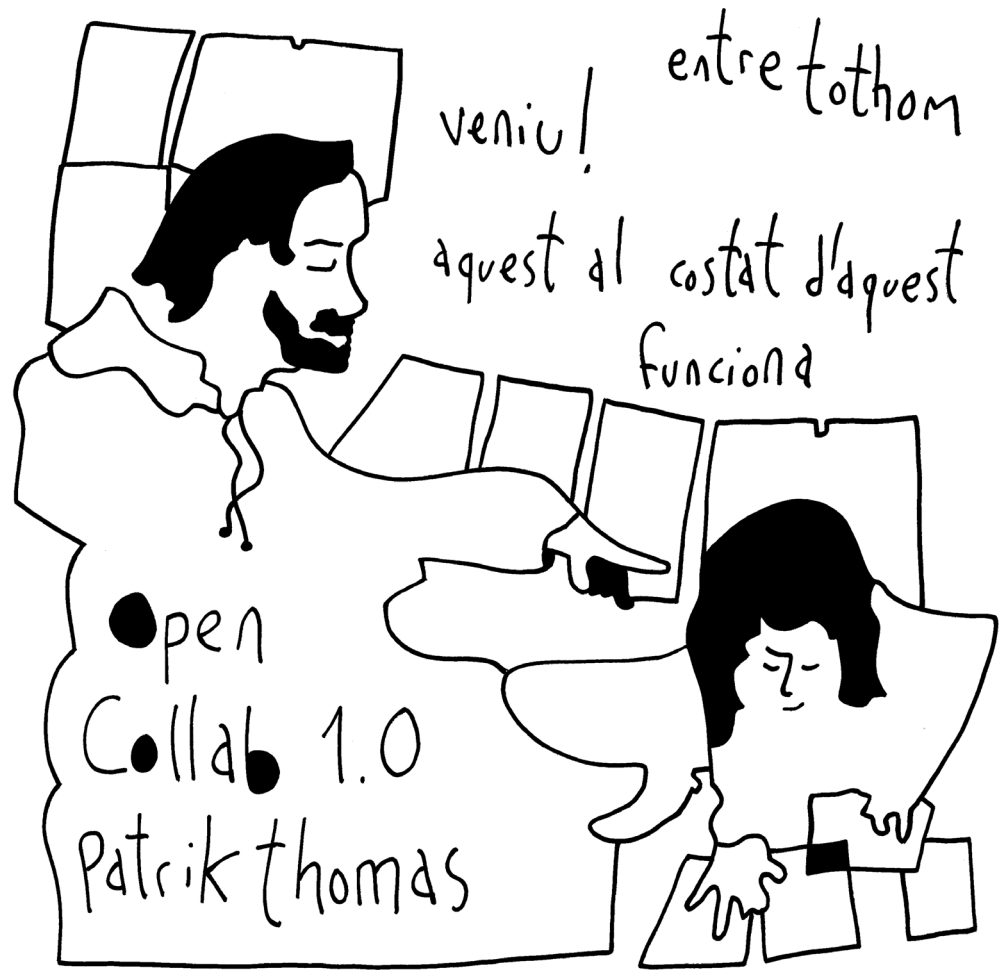 entre tothom
veniu!
aquest al costat d'aquest
funciona
Open
Collab 1.0
Patrik thomas